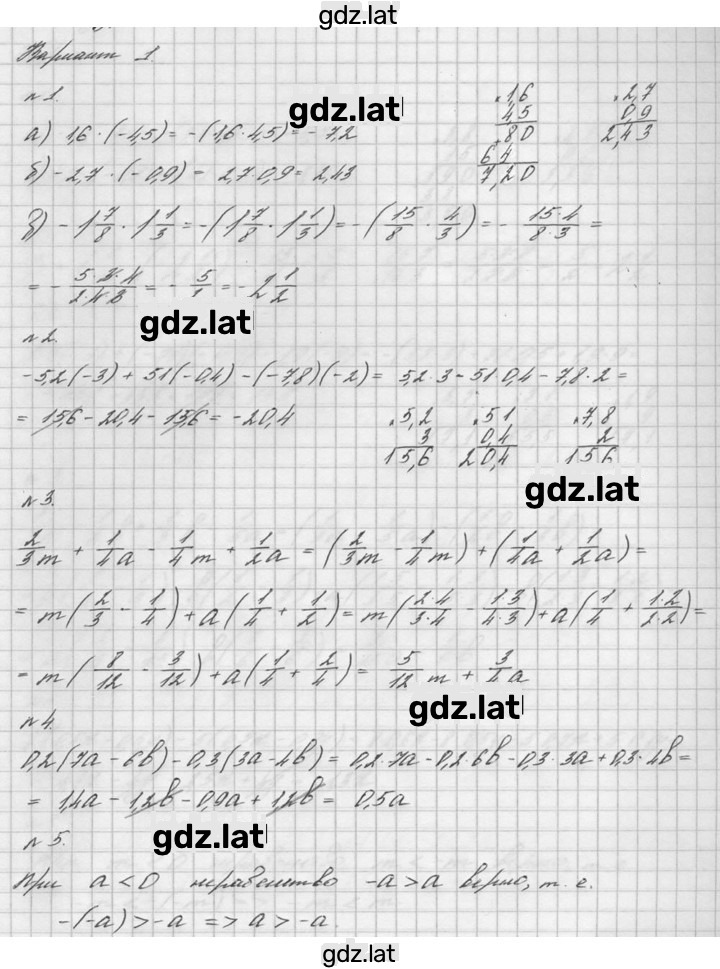 gdz.lat
Вариант 1.
№1.
а) 1,6 · (-4,5) = -(1,6 · 4,5) = -7,2
× 1,6
4,5
80
64
7,20
× 2,7
0,9
2,43
б) -2,7 · (-0,9) = 2,7 · 0,9 = 2,43
gdz.lat
в) -1 7/8 · 1 1/3 = -(1 7/8 · 1 1/3) = -(15/8 · 4/3) = - 15·4/8·3 =
= - 5·3·4/2·4·3 = - 5/ = -2 1/2
gdz.lat
№2.
-5,2(-3) + 51(-0,4) - (-7,8)(-2) = 5,2·3 - 51·0,4 - 7,8·2 =
= 15,6 - 20,4 - 15,6 = -20,4
× 5,2
3
15,6
× 51
0,4
20,4
× 7,8
2
15,6
gdz.lat
№3.
2/3 m + 1/4 a - 1/4 m + 1/2 a = (2/3 m - 1/4 m) + (1/4 a + 1/2 a) =
= m(2/3 - 1/4) + a(1/4 + 1/2) = m(2·4/3·4 - 1·3/4·3) + a(1/4 + 1·2/2·2) =
= m(8/12 - 3/12) + a(1/4 + 2/4) = 5/12 m + 3/4 a
gdz.lat
№4.
0,2(7a - 6b) - 0,3(3a - 4b) = 0,2·7a - 0,2·6b - 0,3·3a + 0,3·4b =
= 1,4a - 1,2b - 0,9a + 1,2b = 0,5a
gdz.lat
№5.
При a < 0 неравенство -a > a верно, т. е.
-(-a) > -a => a > -a.
gdz.lat